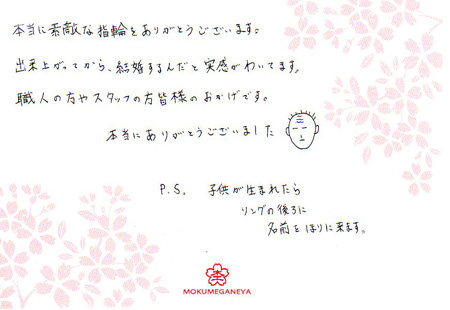 本当に素敵な指輪をありがとうございます。
出来上がってから、結婚するんだと実感がわいてます。
職人の方やスタッフの方皆様のおかげです。
本当にありがとうございました
P.S. 子供が生まれたら
リングの後ろに
名前をほりに来ます。
MOKUMEGANEYA